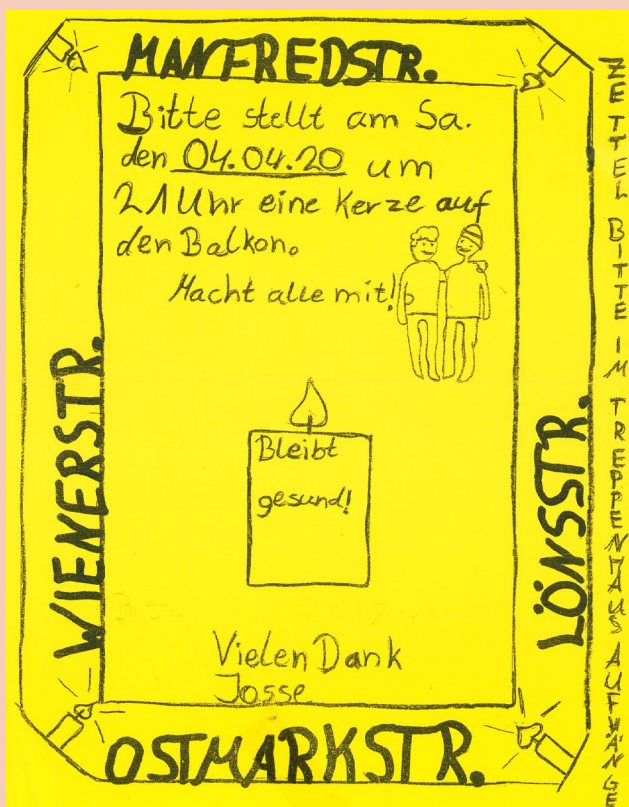 MANFREDSTR.
Bitte stellt am Sa.
den 04.04.20 um
21 Uhr eine Kerze auf
den Balkon.
Macht alle mit!
Bleibt
gesund!
Vielen Dank
Josse
WIENERSTR.
LÖNSSTR.
OSTMARKSTR.
ZETTEL BITTE IM TREPPENHAUS AUFHÄNGE